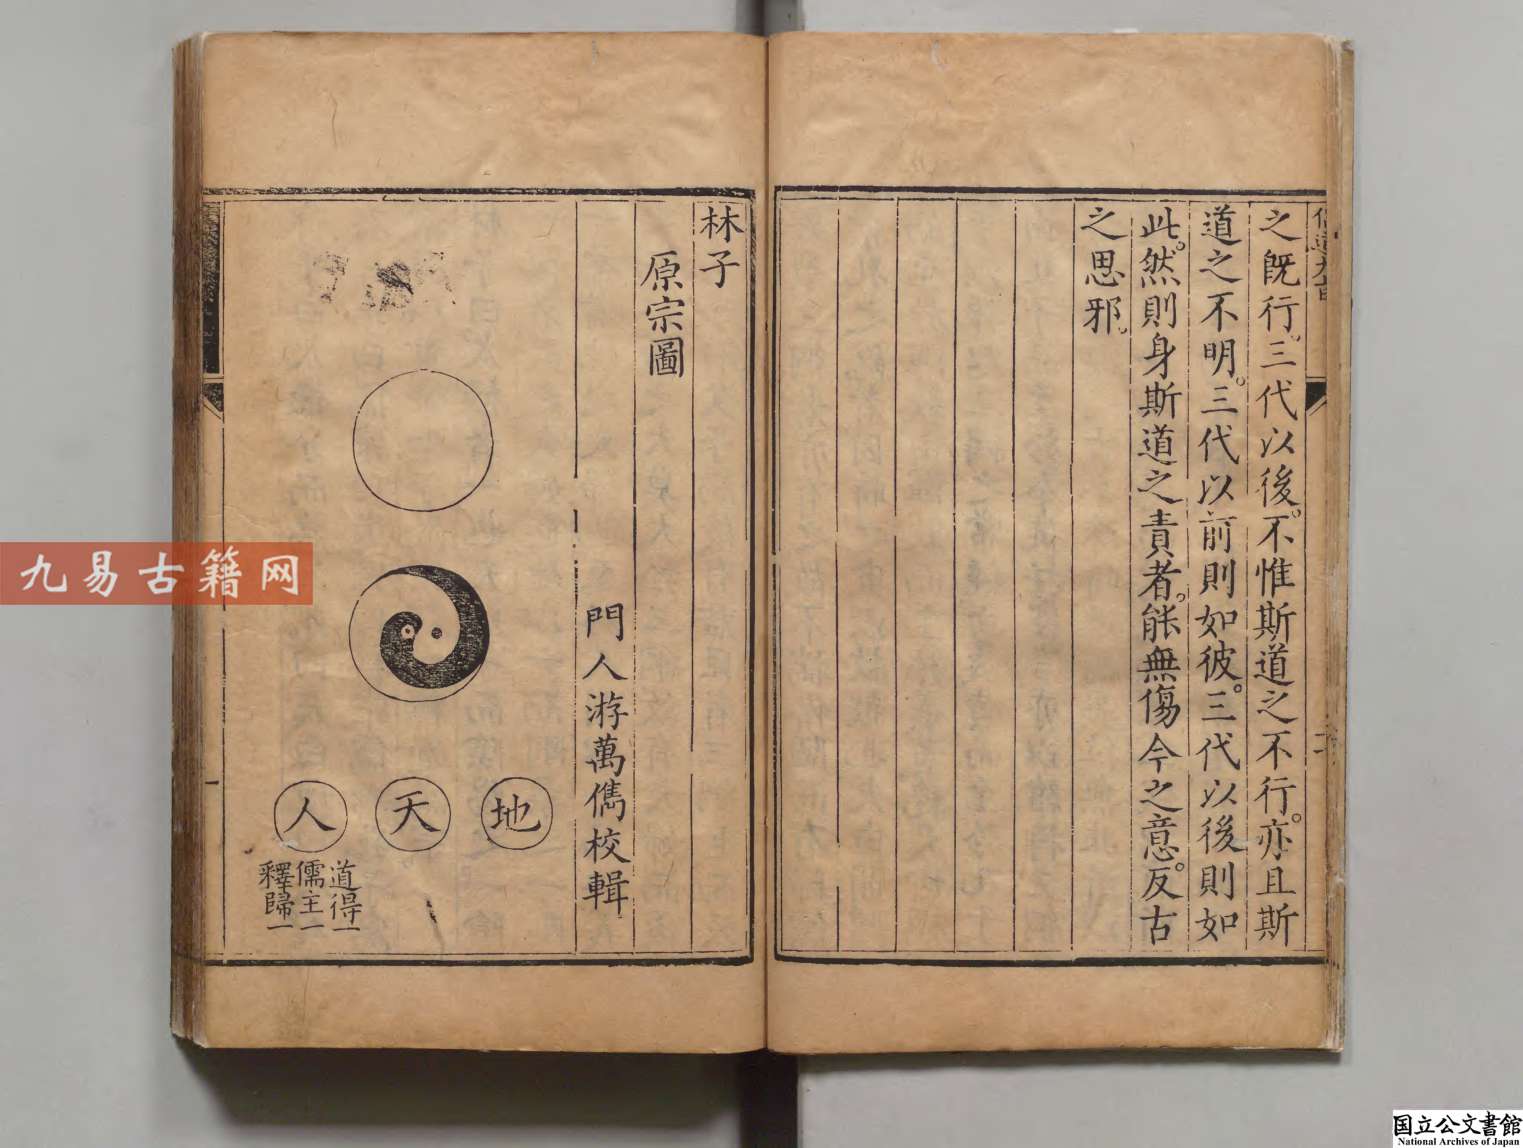 之旣行。三代以後。不惟斯道之不行。亦且斯
道之不明。三代以前則如彼。三代以後則如
此。然則身斯道之責者。能無傷今之意。反古
之思邪。
林子
原宗圖
門人游萬儁校輯
地
天
人
道得一
儒主一
釋歸一
一
九易古籍网
国立公文書館
National Archives of Japan